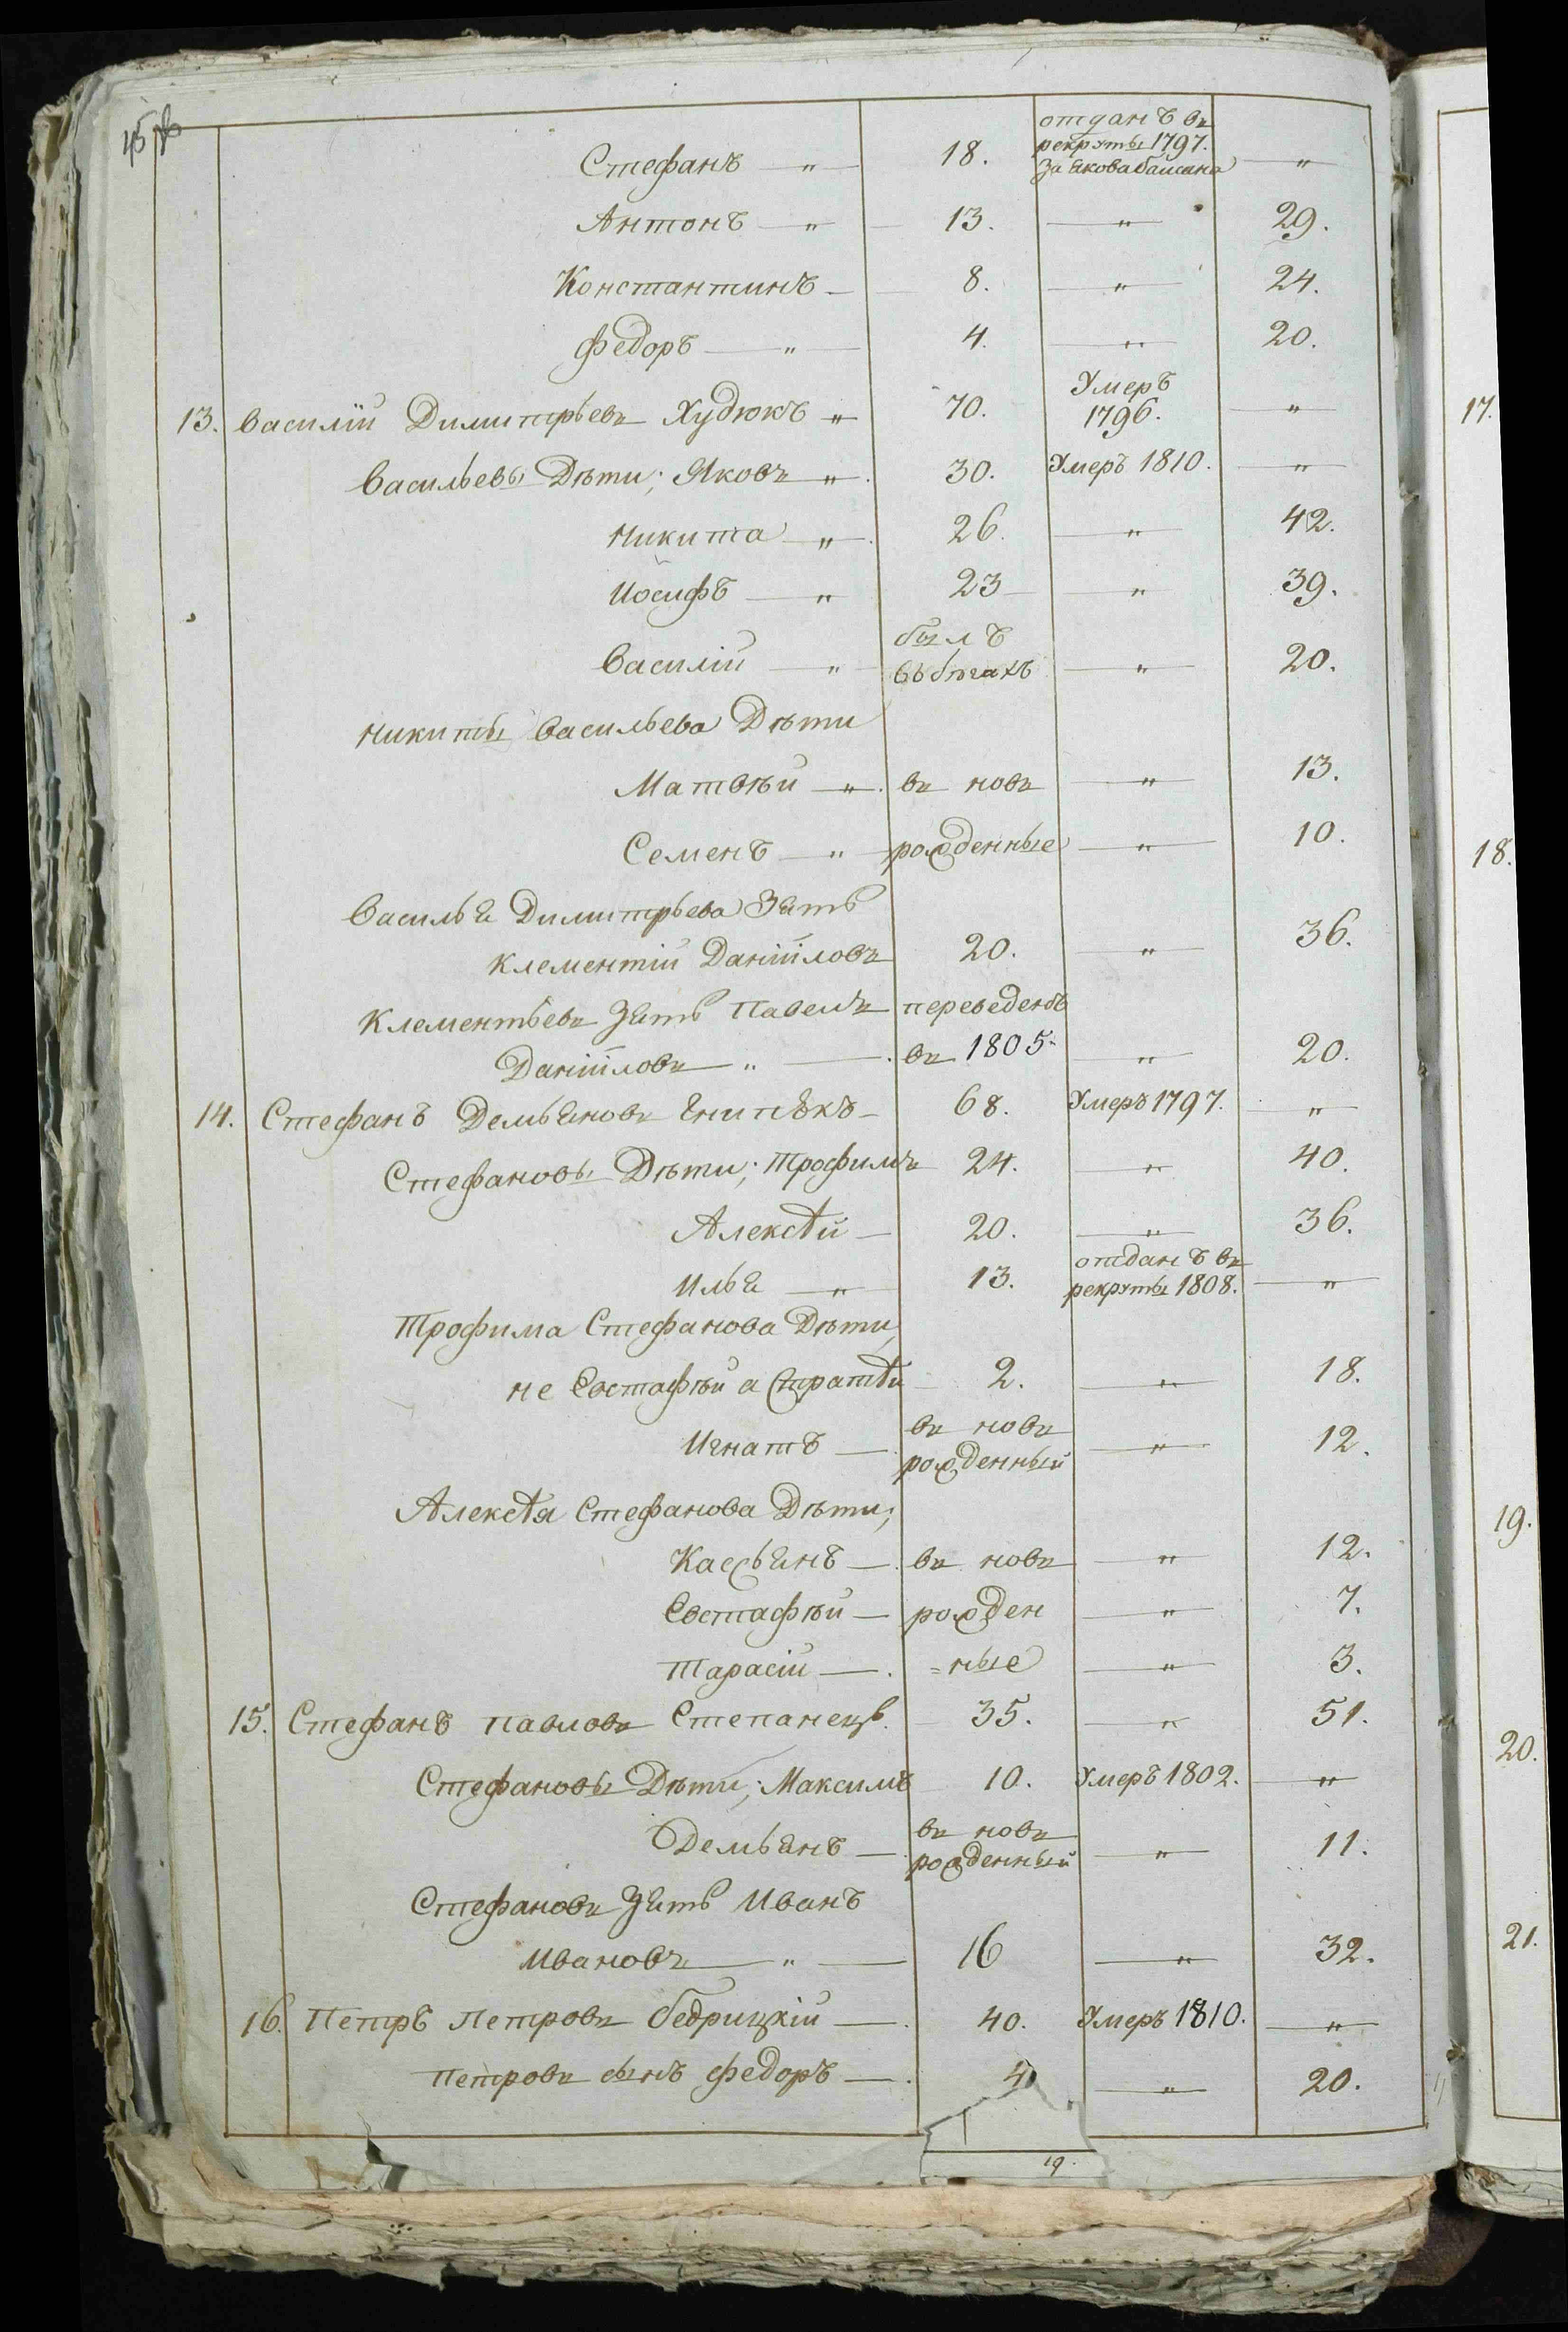 отданъ въ
рекруты 1797.
Стефанъ — „ — 18. за Якова баисана — „
Антонъ — „ — 13. — „ — 29.
Константинъ — 8. — „ — 24.
Федоръ — „ — 4. — „ — 20.
13. Василій Димитрьевъ Худюкъ „ 70. Умеръ 1796. — „
Васильевы Дѣти; Яковъ „ 30. Умеръ 1810. — „
Никита — „ 26. — „ — 42.
Иосифъ — „ 23 — „ — 39.
Василій — „ былъ въ бѣгахъ — „ — 20.
Никиты Васильева Дѣти
Матвѣй — „ въ новъ — „ — 13.
Семенъ — „ рожденные — „ — 10.
Василья Димитрьева Зять
Клементій Даніиловъ 20. — „ — 36.
Клементьевъ Зять Павелъ переведенъ
Даніиловъ „ — въ 1805. — „ — 20.
14. Стефанъ Демьяновъ Янипѣкъ — 68. Умеръ 1797. — „
Стефановы Дѣти; Трофимъ 24. — „ — 40.
Алексѣй — 20. — „ — 36.
отданъ въ
Илья — „ 13. рекруты 1808. — „
Трофима Стефанова Дѣти
не Евстафѣй а Стратѣй 2. — „ — 18.
Игнатъ — въ новъ рожденный — „ — 12.
Алексѣя Стефанова Дѣти;
Касьянъ — въ новъ — „ — 12.
Евстафѣй — рожден — „ — 7.
Тарасій — =ные — „ — 3.
15. Стефанъ Павловъ Степанецъ. 35. — „ — 51.
Стефановы Дѣти; Максимъ 10. Умеръ 1802. — „
Демьянъ — въ новъ рожденный — „ — 11.
Стефановъ Зять Иванъ
Ивановъ — „ — 16 — „ — 32.
16. Петръ Петровъ Бедрицкій — 40. Умеръ 1810. — „
Петровъ сынъ Федоръ — 4 — „ — 20.
19.
17.
18.
19.
20.
21.